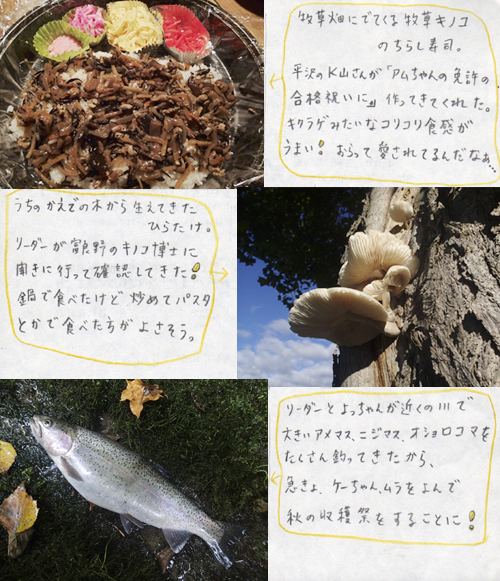 牧草畑にでてくる牧草キノコ
のちらし寿司。
平沢のK山さんが「アムちゃんの免許の
合格祝いに」作ってきてくれた。
キクラゲみたいなコリコリ食感が
うまい! おらって愛されてるんだなぁ…
うちのかえでの木から生えてきた
ひらたけ。
リーダーが富良野のキノコ博士に
聞きに行って確認してきた!
鍋で食べたけど炒めてパスタ
とかで食べた方がよさそう。
リーダーとよっちゃんが近くの川で
大きいアメマス、ニジマス、オショロコマを
たくさん釣ってきたから、
急きょ、ケーちゃん、ムラをよんで
秋の収穫祭をすることに!